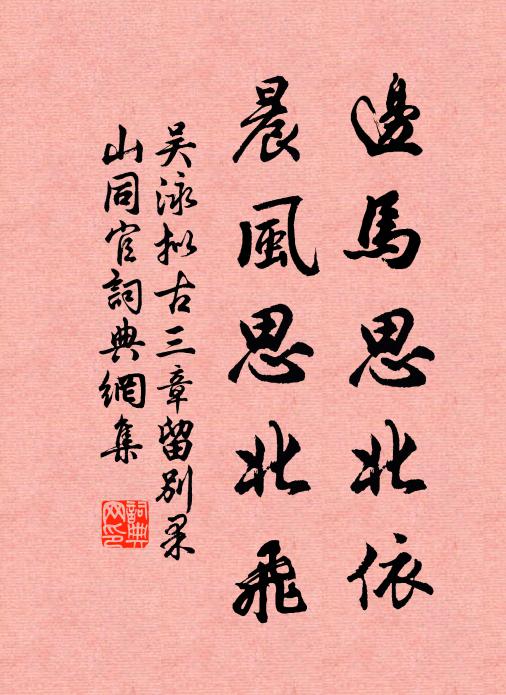 邊馬思北依
晨風思北飛
吴泳拟古三章留别果
山同官詞典網集
詞典
网印